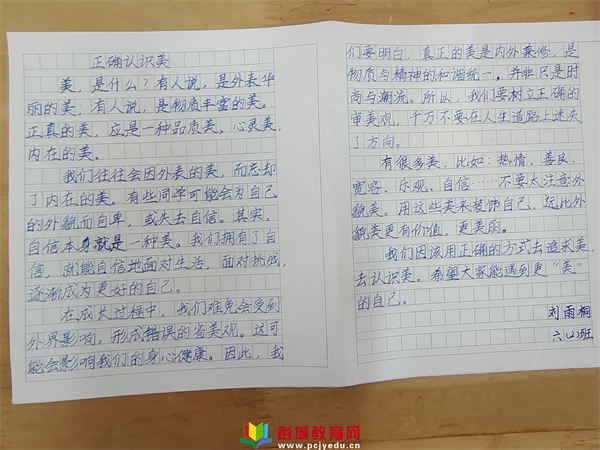 正确认识美
美，是什么？有人说，是外表华
丽的美，有人说，是物质丰富的美。
正真的美，应是一种品质美，心灵美，
内在的美。
我们往往会因外表的美，而忘却
了内在的美。有些同学可能会为自己
的外貌而自卑，或失去自信。其实，
自信本身就是一种美。我们拥有了自
信，就能自信地面对生活，面对挑战，
逐渐成为更好的自己。
在成长过程中，我们难免会受到
外界影响，形成错误的省美观。这可
能会影响我们的身心健康。因此，我
们要明白，真正的美是内外兼修，是
物质与精神的和谐统一，并非只是时
尚与潮流。所以，我们要树立正确的
审美观，千万不要在人生道路上迷失
了方向。
有很多美，比如：热情、善良、
宽容、乐观、自信……不要太注意外
貌美。用这些美来装饰自己，远比外
貌美更有价值，更美丽。
我们因该用正确的方式去追求美，
去认识美。希望大家能遇到更“美”
的自己。
刘雨桐
六(2)班
彭城教育网
www.pcjyedu.cn